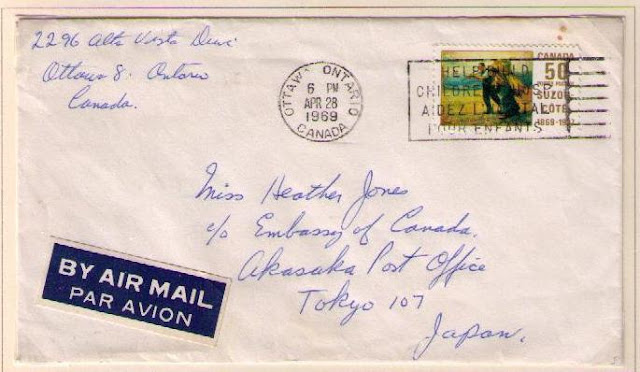 2296 Alta Vista Drive
Ottawa 8. Ontario
Canada.
OTTAWA ONTARIO
6 PM
APR 28
1969
CANADA
HELP
CHILDREN'S
AIDEZ
POUR ENFANTS
CANADA
50
SUZOR
COTE
1869-1937
Miss Heather Jones
c/o Embassy of Canada,
Akasaka Post Office
Tokyo 107
Japan.
BY AIR MAIL
PAR AVION